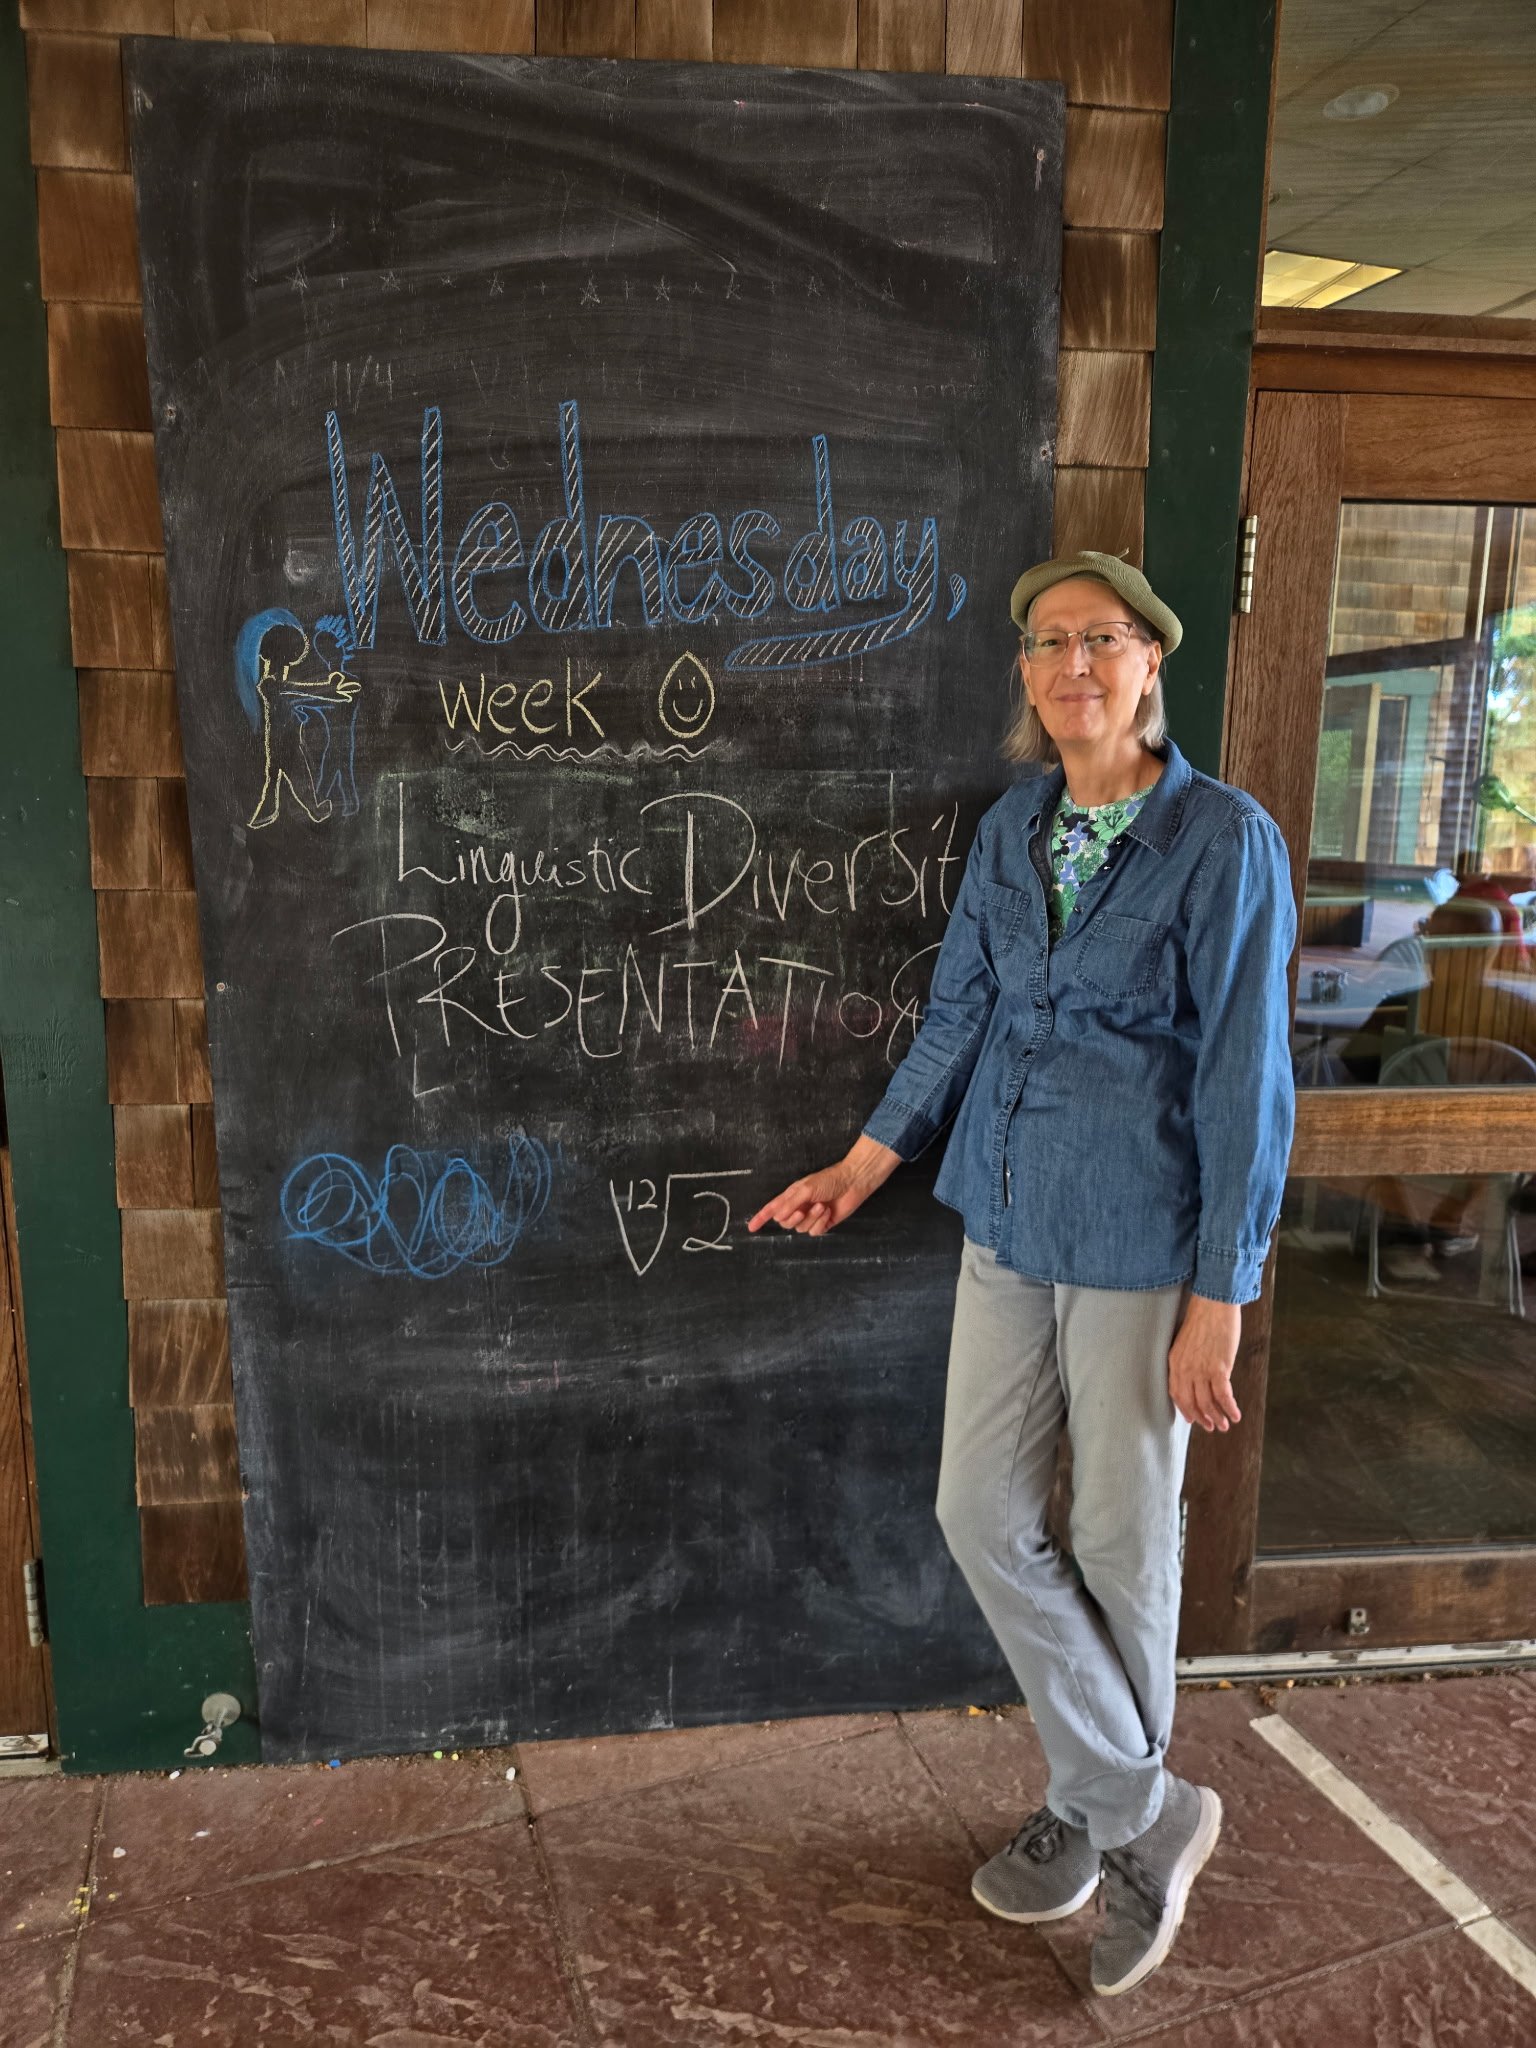 Wednesday,
week
Linguistic Diversit
PRESENTATIO
12√2